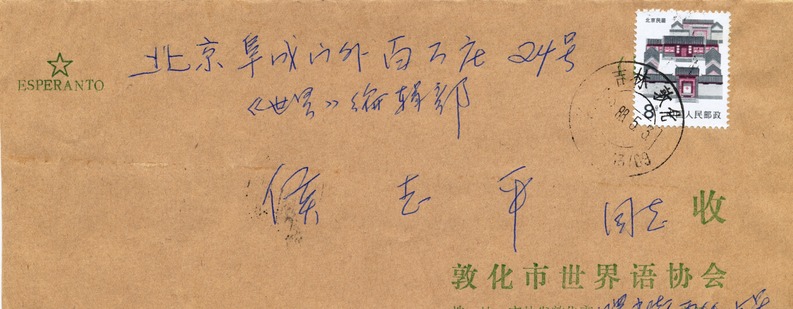 ESPERANTO
北京阜成门外百万庄24号
《世界》编辑部
侯志平 同志 收
敦化市世界语协会
北京民居
8
中国人民邮政
吉林 敦化